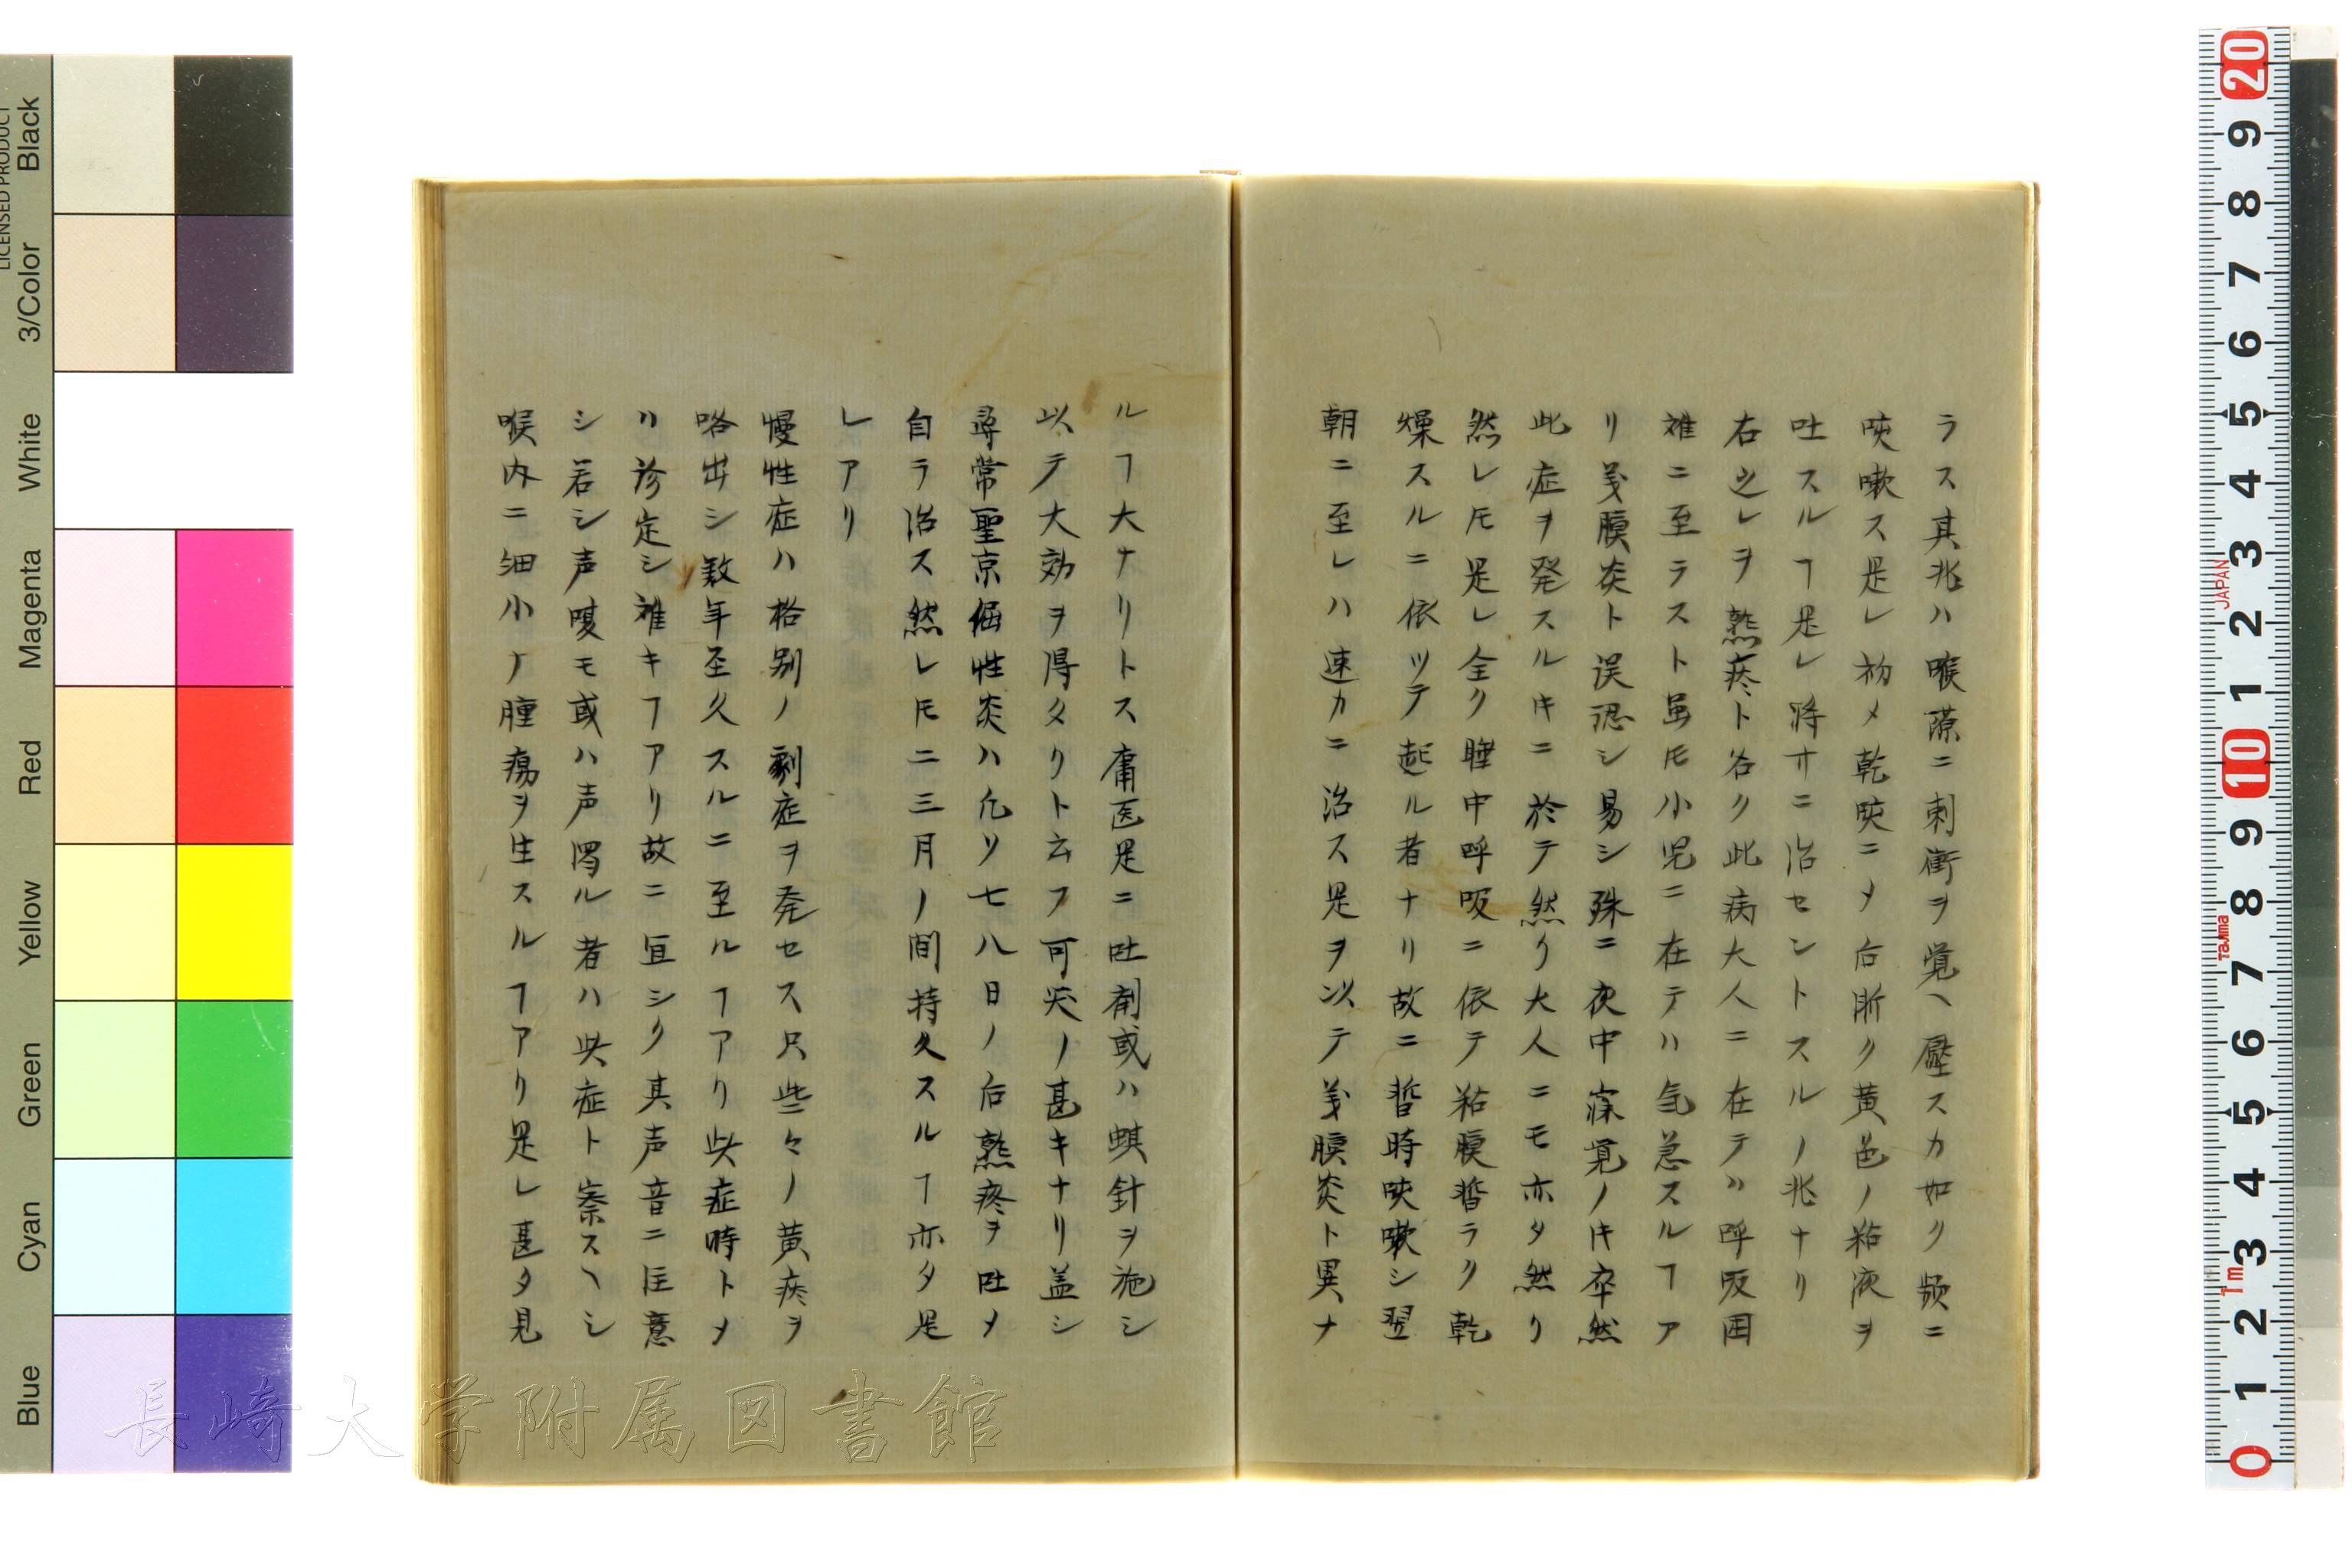 ラス其兆ハ喉頭ニ刺衝ヲ覚ヘ壓スカ如ク頻ニ
咳嗽ス是レ初メ乾咳ニメ后漸ク黄色ノ粘液ヲ
吐スルヿ是レ将ニ治セントスルノ兆ナリ
右之レヲ熟痰ト名ク此病大人ニ在テハ呼吸困
難ニ至ラスト虽𪜈小児ニ在テハ気急スルヿア
リ義膜炎ト误認シ易シ殊ニ夜中寐覚ノ𬼀卒然
此症ヲ発スル𬼀ニ於テ然リ大人ニモ亦タ然リ
然レ𪜈是レ全ク睡中呼吸ニ依テ粘膜暫ラク乾
燥スルニ依ツテ起ル者ナリ故ニ暫時咳嗽シ翌
朝ニ至レハ速カニ治ス是ヲ以テ義膜炎ト異ナ
ルヿ大ナリトス庸医是ニ吐剤或ハ蜞針ヲ施シ
以テ大効ヲ得タリト云フ可笑ノ甚キナリ盖シ
尋常聖京倔性炎ハ凢ソ七八日ノ后熟痰ヲ吐メ
自ラ治ス然レ𪜈二三月ノ間持久スルヿ亦タ是
レアリ
慢性症ハ格别ノ劇症ヲ発セス只些々ノ黄痰ヲ
咯出シ数年至久スルニ至ルヿアリ此症時トメ
ハ診定シ雅キヿアリ故ニ宜シク其声音ニ注意
シ若シ声嗄モ或ハ声濁ル者ハ此症ト察スヘシ
喉内ニ细小ノ腫瘍ヲ生スルヿアリ是レ甚タ見